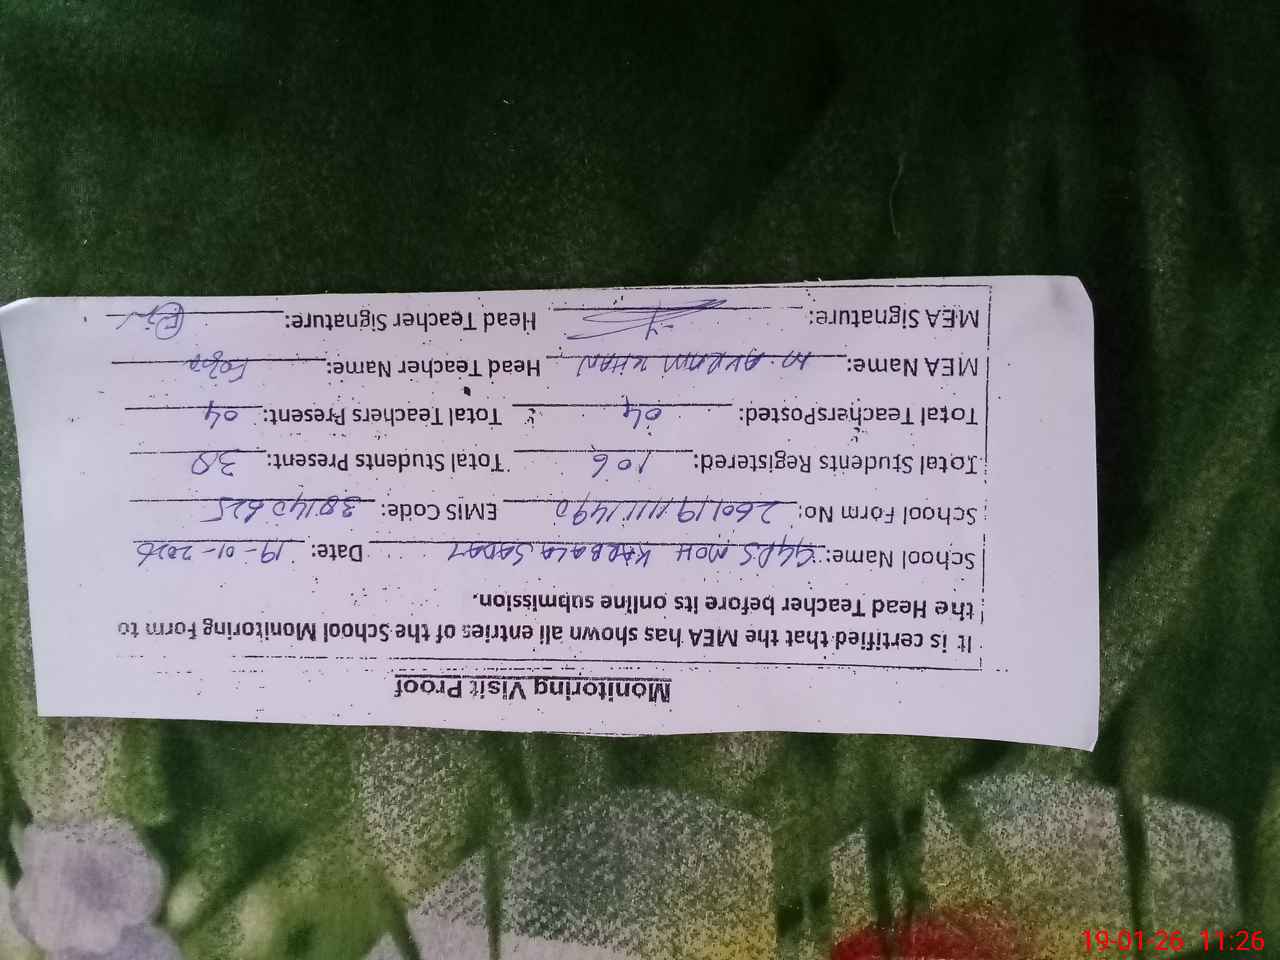 Monitoring Visit Proof
It is certified that the MEA has shown all entries of the School Monitoring Form to
the Head Teacher before its online submission.
School Name: GGPS MOH KARBALA SADAT Date: 19-01-2026
School Form No: 2601191111490 EMIS Code: 38140625
Total Students Registered: 106 Total Students Present: 38
Total TeachersPosted: 04 Total Teachers Present: 04
MEA Name: M. AKRAM KHAN Head Teacher Name:
MEA Signature: Head Teacher Signature:
19-01-26 11:26